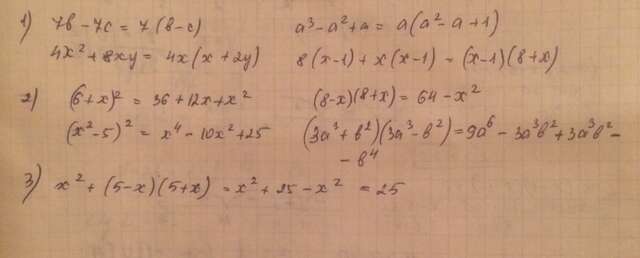 1) 7в - 7с = 7 (в - с) a³ - a² + a = a(a² - a + 1)
4x² + 8xy = 4x (x + 2y) 8 (x-1) + x (x-1) = (x-1)(8+x)
2) (6+x)² = 36 + 12x + x² (8-x)(8+x) = 64 - x²
(x² - 5)² = x⁴ - 10x² + 25 (3a³ + в²)(3a³ - в²) = 9a⁶ - 3a³в² + 3a³в² -
- в⁴
3) x² + (5-x)(5+x) = x² + 25 - x² = 25